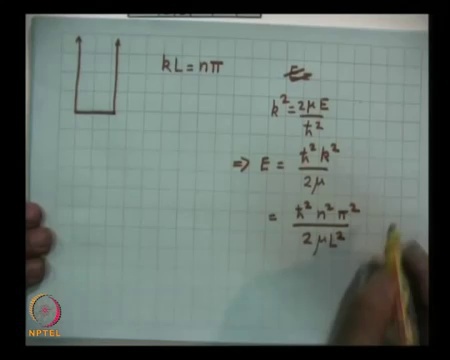 kL = nπ
k² = 2μE / ħ²
⇒ E = ħ² k² / 2μ
= ħ² n² π² / 2μL²
NPTEL